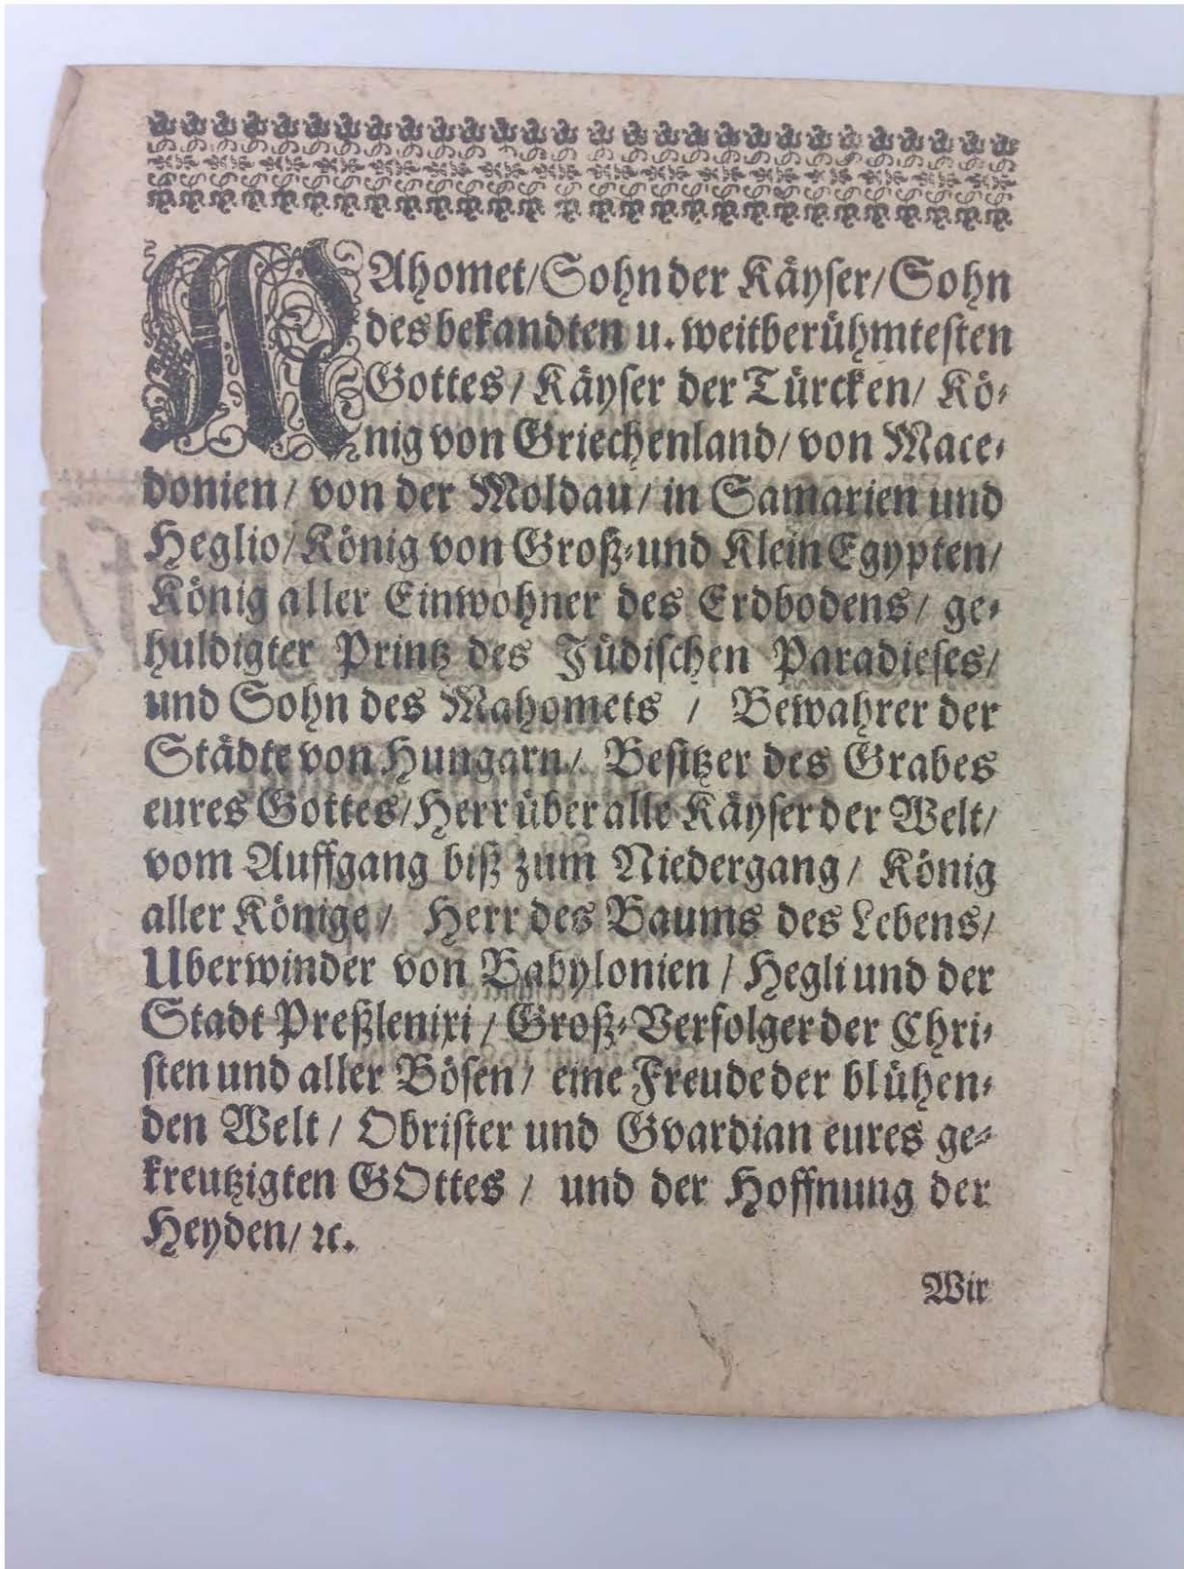 MAhomet/Sohn der Käyser/Sohn
des bekandten u. weitberühmtesten
Gottes/ Käyser der Türcken/ Kö-
nig von Griechenland/ von Mace-
donien/ von der Moldau/ in Samarien und
Heglio/König von Groß-und Klein Egypten/
König aller Einwohner des Erdbodens/ ge-
huldigter Printz des Jüdischen Paradieses/
und Sohn des Mahomets / Bewahrer der
Städte von Hungarn/ Besitzer des Grabes
eures Gottes/Herr über alle Käyser der Welt/
vom Auffgang biß zum Niedergang/ König
aller Könige/ Herr des Baums des Lebens/
Uberwinder von Babylonien / Hegli und der
Stadt Preßlenixi / Groß-Verfolger der Chri-
sten und aller Bösen/ eine Freude der blühen-
den Welt / Obrister und Gvardian eures ge-
kreutzigten GOttes / und der Hoffnung der
Heyden/ ꝛc.
Wir